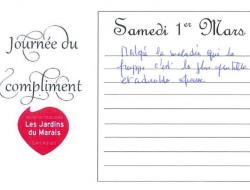 Journée du
compliment
Les Jardins
du Marais
Samedi 1er Mars
Malgré la maladie qui la
frappe c'est la plus gentille
et adorable